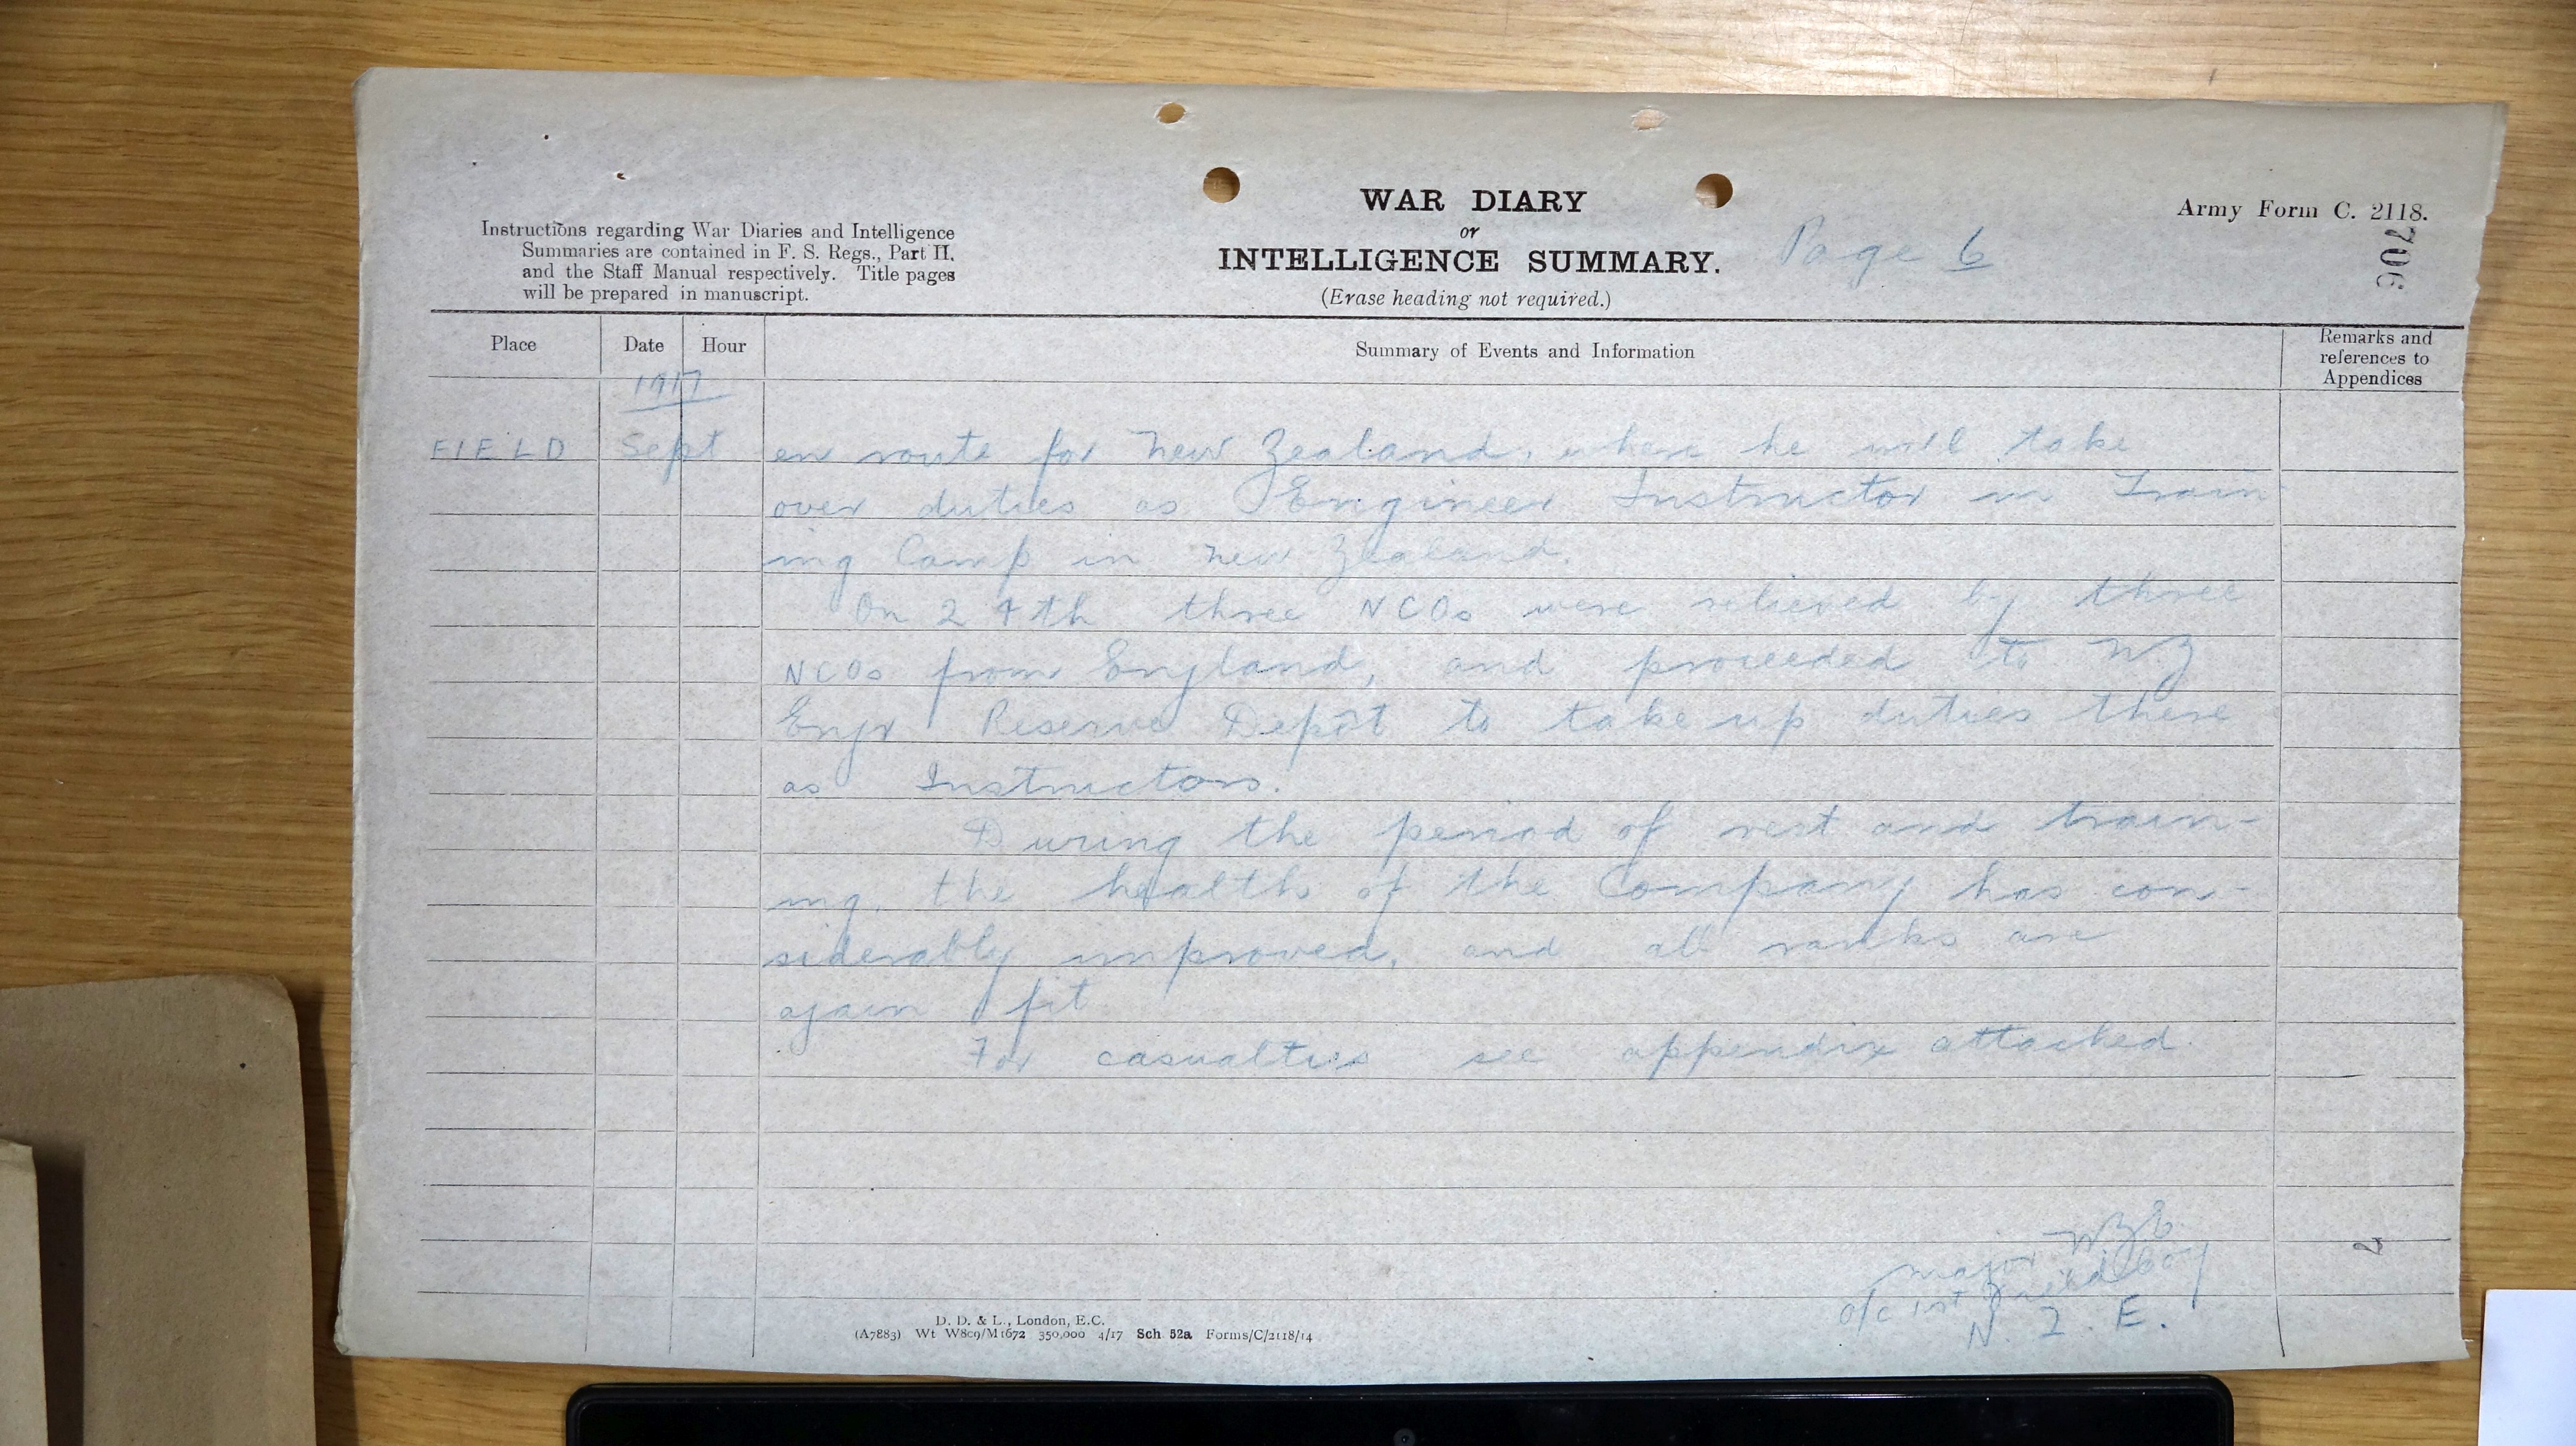 WAR DIARY
or
INTELLIGENCE SUMMARY.
(Erase heading not required.)
Page 6
Army Form C. 2118.
Instructions regarding War Diaries and Intelligence
Summaries are contained in F. S. Regs., Part II,
and the Staff Manual respectively. Title pages
will be prepared in manuscript.
Place
Date
Hour
Summary of Events and Information
Remarks and
references to
Appendices
1917
FIELD Sept en route for New Zealand, where he will take
over duties as Engineer Instructor in Train
ing Camp in New Zealand.
On 24th three NCOs were relieved by three
NCOs from England, and proceeded to NZ
Engr Reserve Depôt to take up duties there
as Instructors.
During the period of rest and train-
ing, the health of the Company has con-
siderably improved, and all ranks are
again fit
For casualties see appendix attached.
Major NZE
o/c 1st Field Coy
N. Z. E.
D. D. & L., London, E.C.
(A7883) Wt W809/M1672 350,000 4/17 Sch. 52a Forms/C/2118/14